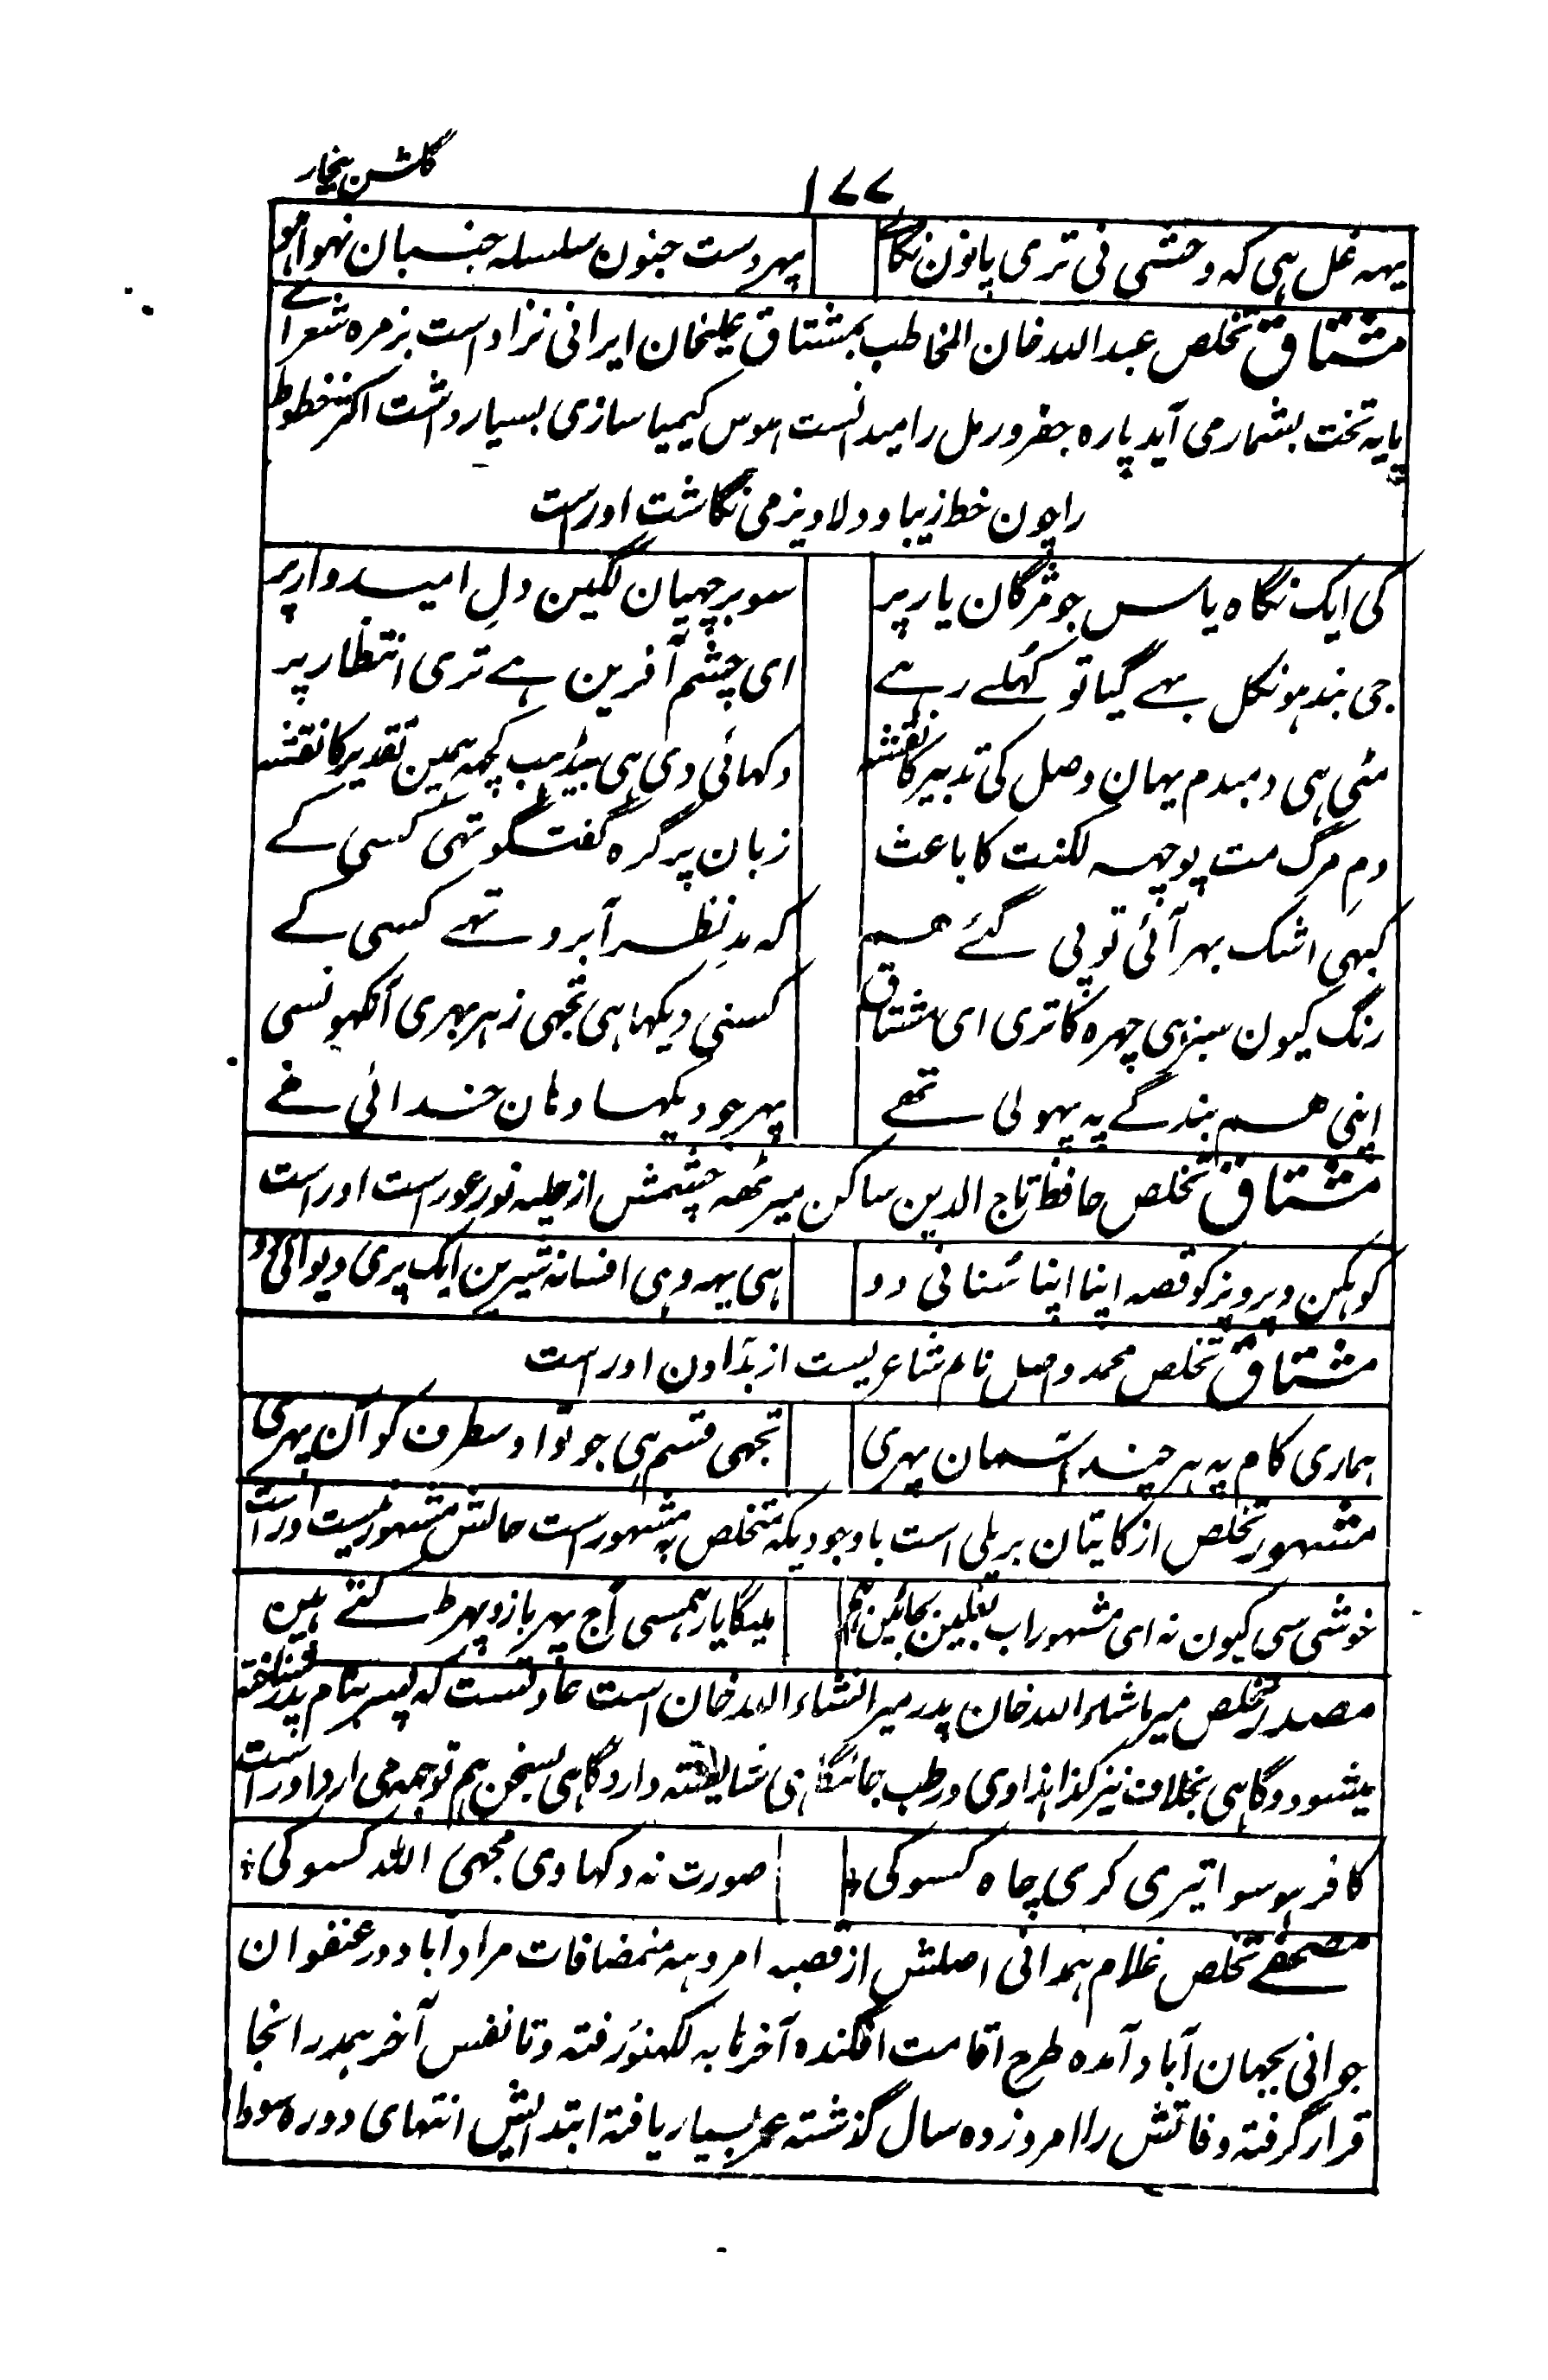 گلشن بیخار
۱۷۷
یہہ غل ہی کہ وحشی نی تری پانون نکالے
پہر دست جنون سلسلہ جنبان نہوا ہو
مشتاق تخلص عبداللہ خان المخاطب بمشتاق علیخان ایرانی نژاد است بزمرہ شعراے
پایہ تخت بشمار می آید پارہ جفر و رمل را میدانست ہوس کیمیا سازی بسیار داشت اکثر خطوط
را چون خط زیبا و دلاویز می نگاشت اوراست
کی ایک نگاہ یاس جو مژگان یار پر
سو برچہیان لگین دلِ امیدوار پر
جی بند ہو نکل بہے گیا تو کہلے رہے
ای چشم آفرین ہے تری انتظار پر
مٹی ہی دمبدم یہان وصل کی تدبیر کا نقشہ
دکہائی دی ہی بیڈہب کچہہ ہمین تقدیر کا نقشہ
دمِ مرگ مت پوچہہ لکنت کا باعث
زبان پر گرہ گفتگو تہی کسی کے
کبہی اشک بہر آئی تو پی گئے ہم
کہ مدِ نظر آبرو تہے کسی کے
رنگ کیون سبز ہی چہرہ کا تری ای مشتاق
کسنی دیکہا ہی تجہی زہر بہری آنکہونسی
اپنی ہم بندگے پہ پہولی تہے
پہر جو دیکہا وہان خدائی ہے
مشتاق تخلص حافظ تاج الدین ساکن میرٹھہ چشمش از حلیہ نور عور است اوراست
کوہکن و پرویز کو قصہ اپنا اپنا سُنانی دو
ہی یہہ وہی افسانہ شیرین ایک پری دیوانی دو
مشتاق تخلص محمد واصل نام شاعریست از بداون اوراست
ہماری کام پہ ہر چند آسمان پہری
تجہی قسم ہی جو تو اوسطرف کو آن پہری
مشہور تخلص از کایتان بریلی است باوجودیکہ متخلص بہ مشہور است حالش مشہور نیست اوراست
خوشی سی کیون نہ ای مشہور اب بغلین بجائین ہم
ملیگا یار ہمسی آج پہر بازو پہڑکتے ہین
مصدر تخلص میر ماشاء اللہ خان پدر میر انشاء اللہ خان است عادتست کہ پسر بنام پدر شناختہ
میشود و گاہی بخلاف نیز کذا ہذا وی در طب جانگاہی شایستہ دارد گاہی بسخن ہم توجہ می آرد اوراست
کافر ہو سوا تیری کری چاہ کسو کی
صورت نہ دکہاوی مجہی اللہ کسو کی
مصحفے تخلص غلام ہمدانی اصلش از قصبہ امروہہ منمضافات مرادآباد در عنفوان
جوانی بجہان آباد آمدہ طرح اقامت افگندہ آخرہا بہ لکہنؤ رفتہ و تا نفس آخر ہمدرانجا
قرار گرفتہ وفاتش را امروز دہ سال گذشتہ عمر بسیار یافتہ ابتدایش انتہای دورہ سودا